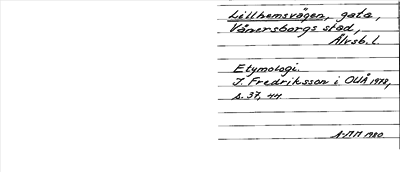 Lillhemsvägen, gata,
Vänersborgs stad,
Älvsb. l.
Etymologi.
I. Fredriksson i OUÅ 1978,
s. 37, 44
A-MM 1980